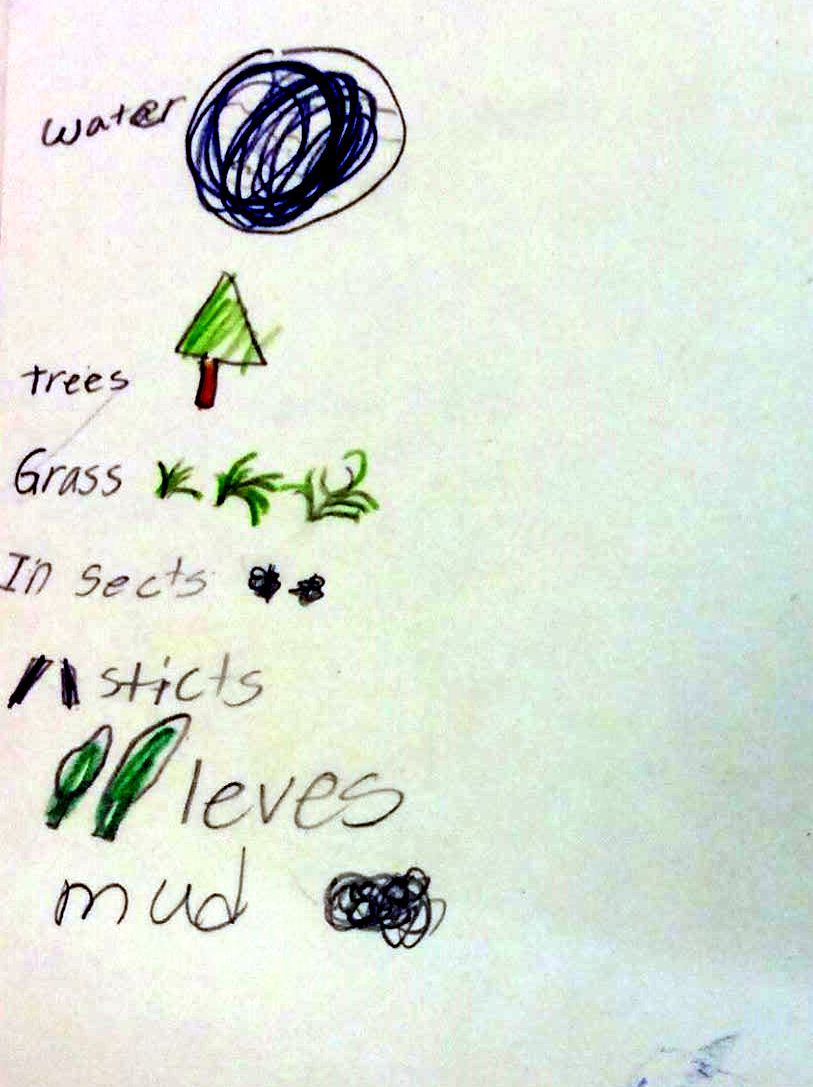 water
trees
Grass
In sects
sticts
leves
mud